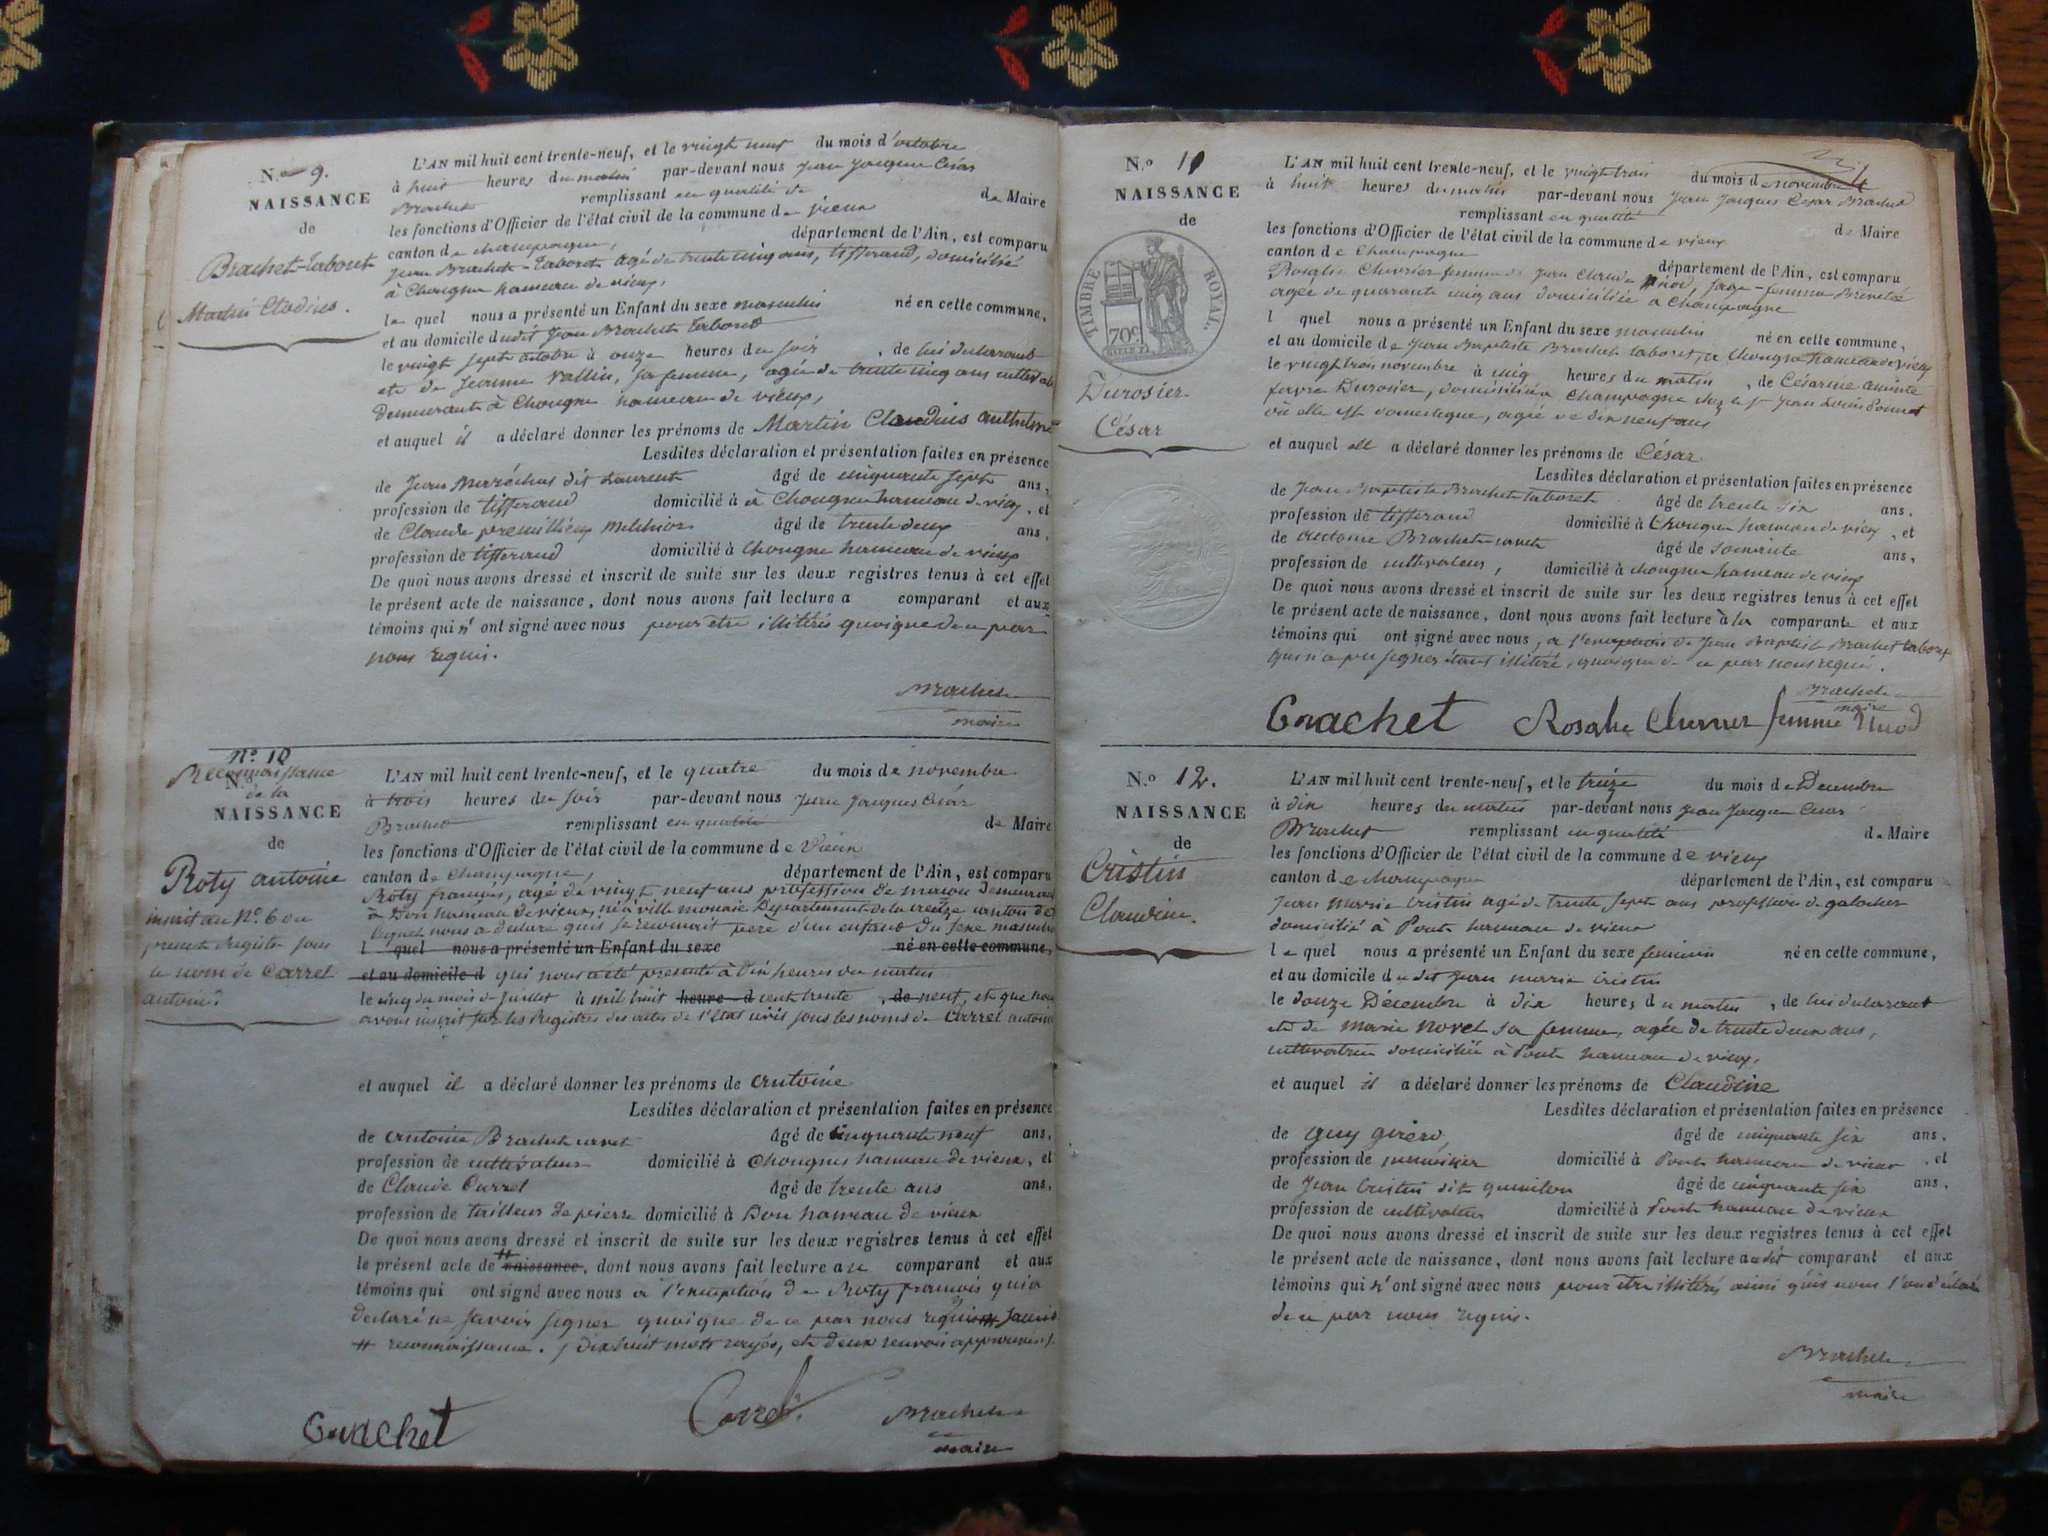 N.o 9.
NAISSANCE
de
Brachet-Taboret
Martin Cladius.
L'AN mil huit cent trente-neuf, et le vingt neuf du mois d'octobre
à huit heures du matin par-devant nous Jean Jacques César
Brachet remplissant en qualité de de Maire
les fonctions d'Officier de l'état civil de la commune de vieux
canton de champagne, département de l'Ain, est comparu
Jean Brachet-Taboret agé de trente cinq ans, tifferand, domicilié
à Chongne hameau de vieux,
le quel nous a présenté un Enfant du sexe masculin né en cette commune,
et au domicile dudit Jean Brachet Taboret
le vingt sept octobre à onze heures du soir, de lui déclarant
et de Jeanne Vallin, sa femme, agée de trente cinq ans
Demeurant à Chongne hameau de vieux,
et auquel il a déclaré donner les prénoms de Martin Claudius anthelme
Lesdites déclaration et présentation faites en présence
de Jean Maréchal dit Laurent âgé de cinquante sept ans,
profession de tifferand domicilié à à Chongne hameau de vieux, et
de Claude premillieux Melchior âgé de trente deux ans,
profession de tifferand domicilié à Chongne hameau de vieux
De quoi nous avons dressé et inscrit de suite sur les deux registres tenus à cet effet
le présent acte de naissance, dont nous avons fait lecture a comparant et aux
témoins qui n' ont signé avec nous pour être illitérés quoique de ce par
nous requis.
Brachet
maire
N.o 10
Reconnaissance
N.o de la
NAISSANCE
de
Roty antoine
inscrit au No. 6 du
présent Registre sous
le nom de Carrel
antoine
L'AN mil huit cent trente-neuf, et le quatre du mois de novembre
à trois heures du soir par-devant nous Jean Jacques César
Brachet remplissant en qualité de Maire
les fonctions d'Officier de l'état civil de la commune de Vieux
canton de Champagne, département de l'Ain, est comparu
Roty françois, agé de vingt neuf ans profession de maçon Demeurant
à Don hameau de vieux, né à ville Département de la creuze canton de
lequel nous a déclaré qu'il se reconnait père d'un enfant du sexe masculin
l quel nous a présenté un Enfant du sexe né en cette commune,
et au domicile d qui nous a été présenté à dix heures du matin
le cinq du mois de Juillet à mil huit heure d cent trente, de neuf, et que nous
avons inscrit sur les Registres des actes de l'Etat civil sous les noms de Carrel antoine
et auquel il a déclaré donner les prénoms de antoine
Lesdites déclaration et présentation faites en présence
de antoine Brachet âgé de cinquante neuf ans,
profession de cultivateur domicilié à Chongnes hameau de vieux, et
de Claude Carrel âgé de trente ans ans,
profession de tailleur de pierre domicilié à Don hameau de vieux
De quoi nous avons dressé et inscrit de suite sur les deux registres tenus à cet effet
le présent acte de # naissance, dont nous avons fait lecture au comparant et aux
témoins qui ont signé avec nous à l'exception de Roty françois qui a
déclaré ne savoir signer quoique de ce par nous requis
# reconnaissance. / Dix huit mots rayés, et deux renvois approuvés /.
Brachet Carrel Brachet
maire
N.o 11
NAISSANCE
de
TIMBRE ROYAL.
70c.
Durosier
César
L'AN mil huit cent trente-neuf, et le vingt trois du mois de novembre
à huit heures du matin par-devant nous Jean Jacques César Brachet
remplissant en qualité de Maire
les fonctions d'Officier de l'état civil de la commune de vieux
canton de Champagne département de l'Ain, est comparu
Rosalie Chevrier femme de Jean Claude sage-femme
agée de quarante cinq ans domiciliée à Champagne
l quel nous a présenté un Enfant du sexe masculin né en cette commune,
et au domicile de Jean Baptiste Brachet taboret, à Chongne hameau de vieux
le vingt trois novembre à cinq heures du matin, de Césarine
favre Durosier, domiciliée à Champagne chez le sr Jean Louis
où elle est domestique, agée de dix neuf ans
et auquel elle a déclaré donner les prénoms de César
Lesdites déclaration et présentation faites en présence
de Jean Baptiste Brachet taboret âgé de trente six ans,
profession de tifferand domicilié à Chongne hameau de vieux, et
de antoine Brachet âgé de soixante ans,
profession de cultivateur, domicilié à chongne hameau de vieux
De quoi nous avons dressé et inscrit de suite sur les deux registres tenus à cet effet
le présent acte de naissance, dont nous avons fait lecture à la comparante et aux
témoins qui ont signé avec nous, à l'exception de Jean Baptiste Brachet taboret
qui n'a pu signer étant illitéré, quoique de ce par nous requis.
Brachet
maire
Brachet Rosalie Chevrier femme
N.o 12.
NAISSANCE
de
Cristin
Claudine.
L'AN mil huit cent trente-neuf, et le treize du mois de Decembre
à dix heures du matin par-devant nous Jean Jacques César
Brachet remplissant en qualité de Maire
les fonctions d'Officier de l'état civil de la commune de vieux
canton de champagne département de l'Ain, est comparu
Jean Marie Cristin agé de trente sept ans profession de galocher
domicilié à Pont hameau de vieux
le quel nous a présenté un Enfant du sexe feminin né en cette commune,
et au domicile du dit Jean marie Cristin
le douze Décembre à dix heures du matin, de lui déclarant
et de marie novel sa femme, agée de trente deux ans,
cultivatrice domiciliée à Pont hameau de vieux,
et auquel il a déclaré donner les prénoms de Claudine
Lesdites déclaration et présentation faites en présence
de guy âgé de cinquante six ans,
profession de domicilié à Pont hameau de vieux, et
de Jean Cristin dit âgé de cinquante six ans,
profession de cultivateur domicilié à Pont hameau de vieux
De quoi nous avons dressé et inscrit de suite sur les deux registres tenus à cet effet
le présent acte de naissance, dont nous avons fait lecture audit comparant et aux
témoins qui n' ont signé avec nous pour être illitérés ainsi qu'ils nous l'ont déclaré
de ce par nous requis.
Brachet
maire